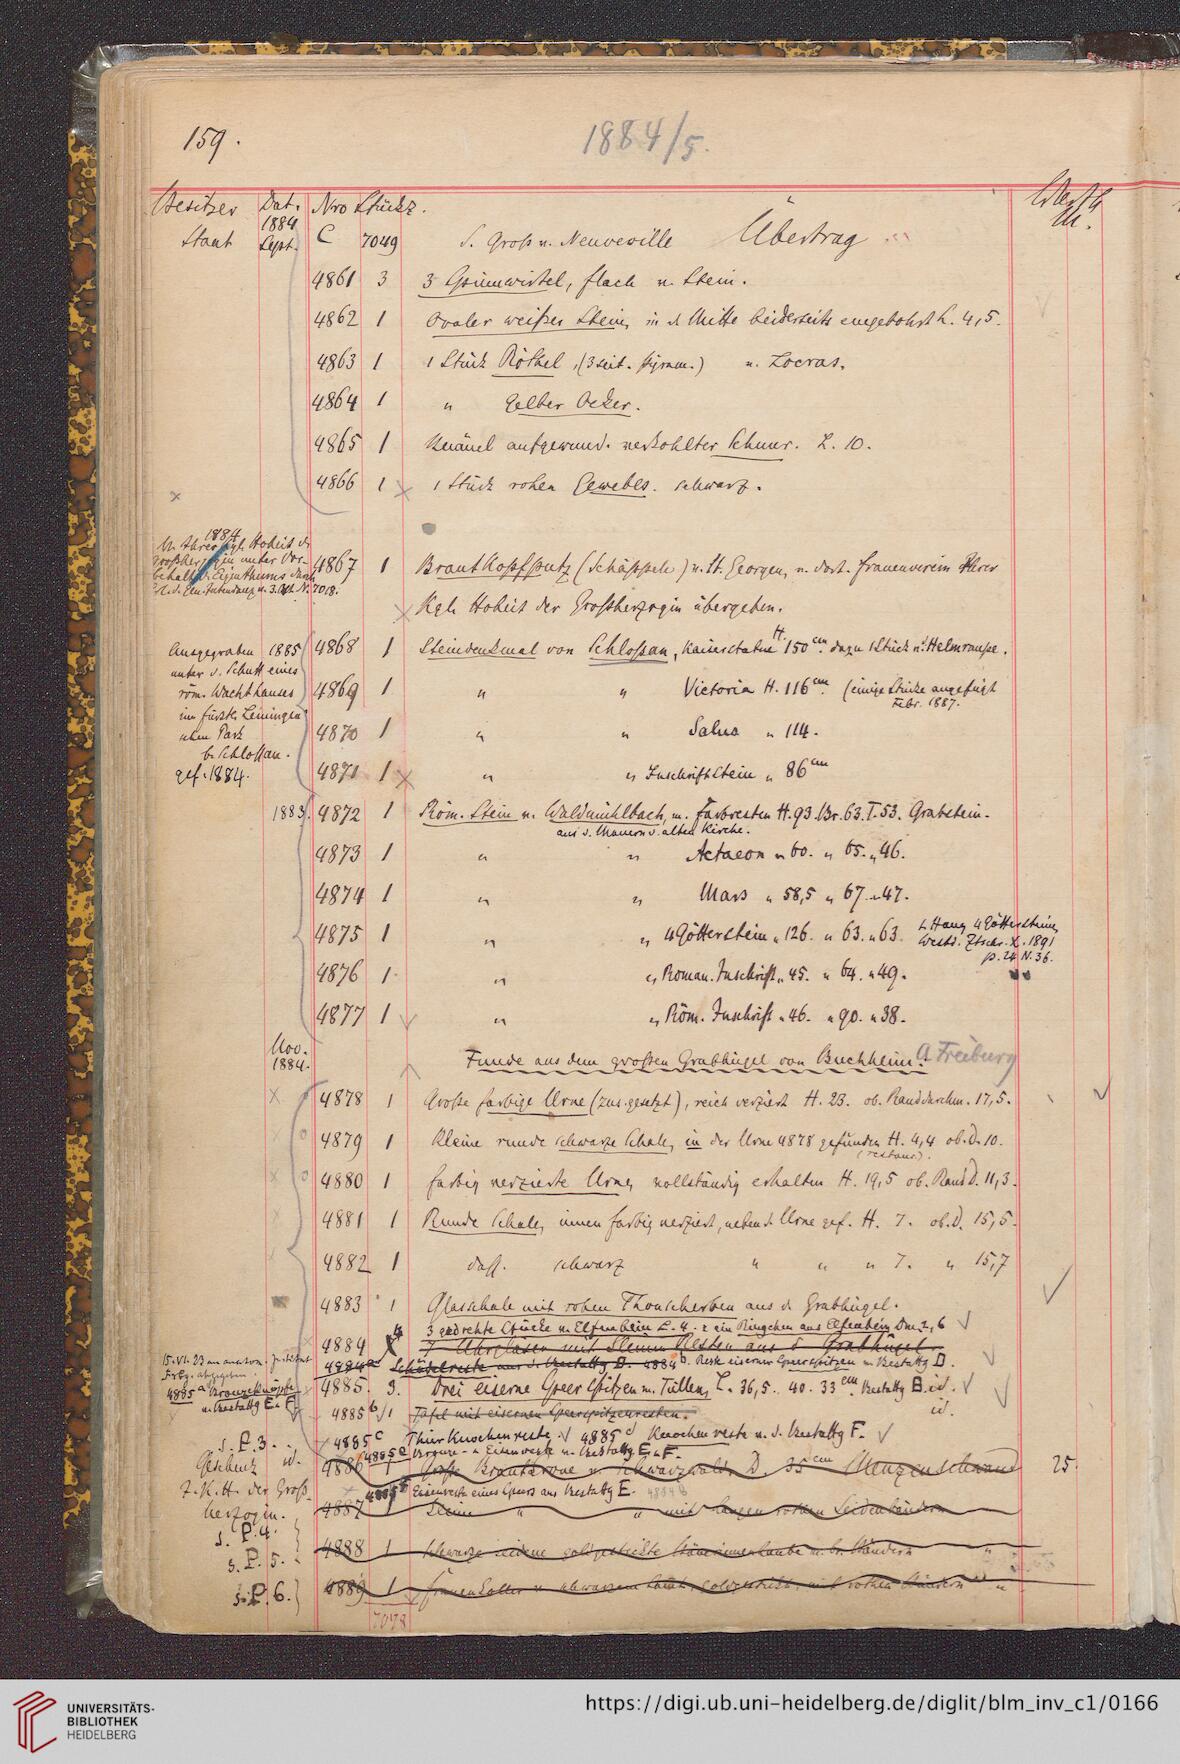 159.
1884/5.
Besitzer Dat. Nro Stückz. Werth
1884 M.
Staat Sept. C 7049 S. Groß u. Neuveville Übertrag
4861 3 3 Spinnwirtel, flach u. Stein.
4862 1 Ovaler weißer Stein, in d. Mitte beiderseits eingebohrt L. 4,5.
4863 1 1 Stück Röthel, (3seit. Pyram.) v. Locras.
4864 1 " Gelber Ocker.
4865 1 Knäuel aufgewund. verkohlter Schnur. L. 10.
4866 1 1 Stück rohen Gewebes. schwarz.
1884
Hoheit d.
unter Vor-
behalt d. Eigenthums durch
4867 1 Brautkopfputz (Schäppele) v. St. Georgen, v. dort. Frauenverein Ihrer
Kgl. Hoheit der Großherzogin übergeben.
Ausgegraben 1885 4868 1 Steindenkmal von Schloßau, Kaiserstatue H. 150 cm. dazu 1 Stück v. Helmraupe.
unter d. Schutt eines
röm. Wachthauses 4869 1 " " Victoria H. 116 cm. (einige Stücke angefügt
Febr. 1887.
im fürstl. Leiningen
schen Park 4870 1 " " Salus " 114.
b. Schloßau.
gef. 1884. 4871 1 " " Inschriftstein " 86 cm
1883. 4872 1 Röm. Stein v. Waldmühlbach, m. Farbresten H. 93. Br. 63. T. 53. Grabstein.
aus d. Mauern d. alten Kirche.
4873 1 " " Actaeon " 60. " 65. " 46.
4874 1 " " Mars " 58,5 " 67. " 47.
4875 1 " " 4Götterstein " 126. " 63. " 63. s. Haug 4Göttersteine,
Westd. Ztschr. X. 1891
p. 24 N. 36.
4876 1 " " Roman. Inschrift " 45. " 64. " 49.
4877 1 " " Röm. Inschrift " 46. " 90. " 38.
Nov.
1884. Funde aus dem großen Grabhügel von Buchheim. A Freiburg
4878 1 Große farbige Urne (zus.gesetzt), reich verziert H. 23. ob. Randdurchm. 17,5.
4879 1 Kleine runde schwarze Schale, in der Urne 4878 gefunden H. 4,4 ob. D. 10.
(restaur.).
4880 1 farbig verzierte Urne, vollständig erhalten H. 19,5 ob. Rand D. 11,3.
4881 1 Runde Schale, innen farbig verziert, neben d. Urne gef. H. 7. ob. D. 15,5.
4882 1 dass. schwarz " " " 7. " 15,7
4883 1 Glasschale mit rohen Thonscherben aus d. Grabhügel.
3 gedrehte Stücke v. Elfenbein L. 4. 2 ein Ringchen aus Elfenbein Dm. 2,6
4884 4 7 Uhrgläser mit kleinen Resten aus d. Grabhügel.
4884a Schädelreste aus d. Bestattg D. 4884b. Reste eiserner Speerspitzen v. Bestattg D.
4885a Bronzeknöpfe
v. Bestattg E u. F
4885. 3. Drei eiserne Speerspitzen m. Tüllen, L. 36,5. 40. 33 cm. Bestattg B. id.
4885b 1 Tafel mit eisernen Speerspitzenresten. id.
4885c Thierknochenreste. 4885d Knochenreste v. d. Bestattg F.
s. P. 3.
4885e Bronze- u. Eisenreste v. Bestattg E. u. F.
Geschenk id. 4886 1 Große Brautkrone v. Schwarzwald, D. 35 cm Menzenschwand 25.
I. K. H. der Groß-
4885f Eisenreste eines Speers aus Bestattg E. 4884B
herzogin. 4887 1 Kleine " " mit langen rothen Seidenbändern
s. P. 4.
s. P. 5. 4888 1 Schwarze seidene goldgestickte haube m. br. Bändern "
s. P. 6. 4889 1 Frauenkoller v. schwarzem Samt, goldgestickt, mit rothen Bändern "
7078
UNIVERSITÄTS-
BIBLIOTHEK
HEIDELBERG
https://digi.ub.uni-heidelberg.de/diglit/blm_inv_c1/0166